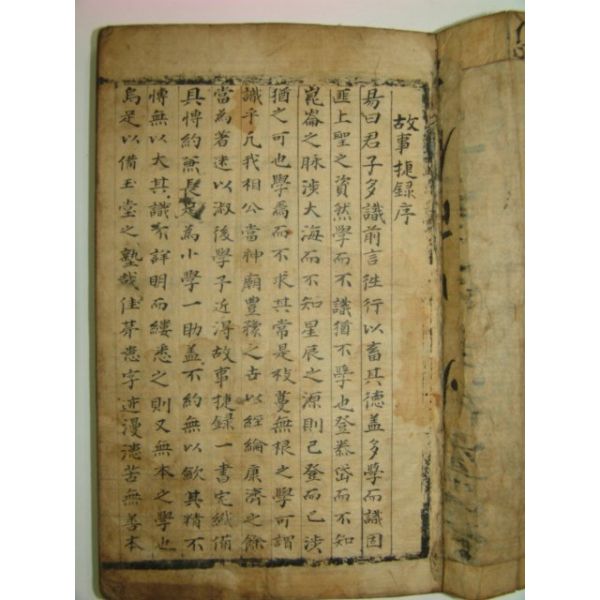 故事捷録序
易曰君子多識前言徃行以畜其德盖多學而識固
匪上聖之資然學而不識猶不學也登泰岱而不知
崑崙之脉涉大海而不知星辰之源則已登而已涉
猶之可也學焉而不求其常是枝蔓無根之學可謂
識乎凡我相公當神廟豊穣之古以經綸康濟之餘
當為著述以淑後學予近得故事捷録一書完纎備
具愽約無長足為小學一助盖不約無以歛其精不
愽無以大其識不詳明而縷悉之則又無本之學也
烏足以備玉堂之塾哉佳茅悉字迹漫漶苦無善本